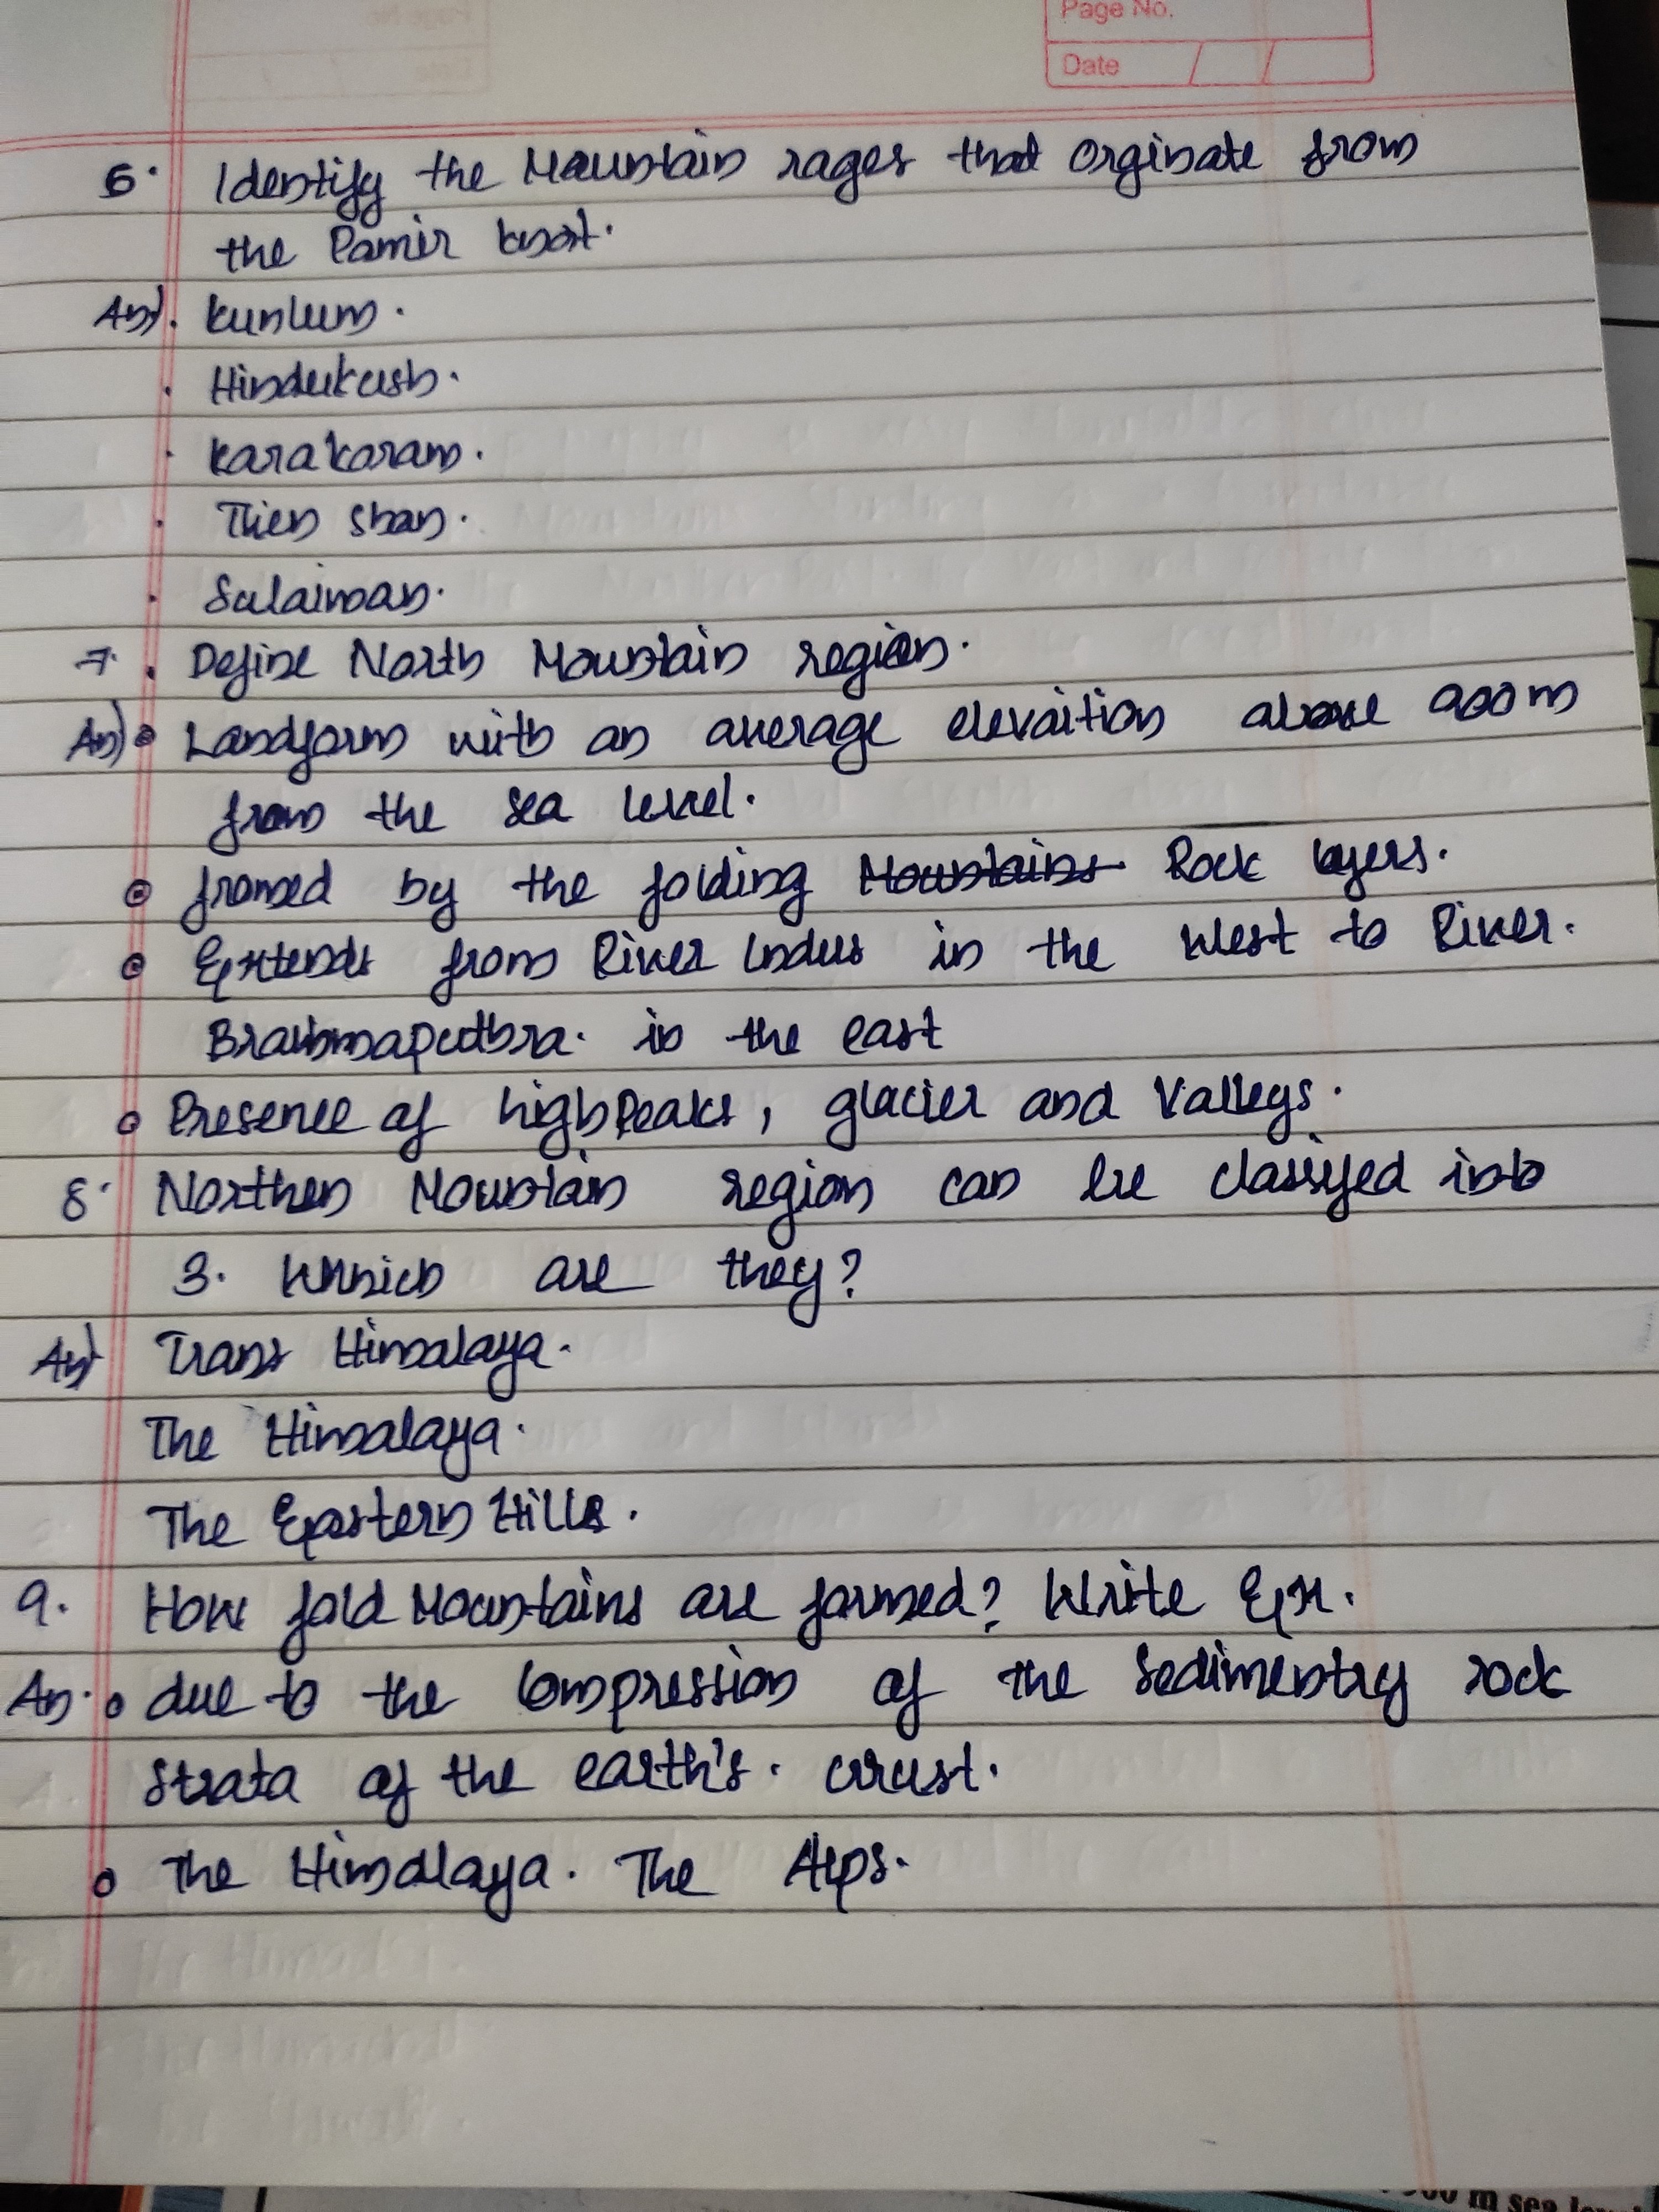 Page No.
Date / /
6. Identify the Mountain rages that orginate from
the Pamir knot.
Ans). Kunlum.
. Hindukush.
. Karakoram.
. Thien shan.
. Sulaiman.
7. . Define North Mountain region.
Ans) Landform with an average elevaition above 900m
from the sea level.
fromed by the folding Mountains Rock layers.
Extends from River Indus in the West to River.
Brahmaputhra. in the east
Presence of high Peaks, glacier and Valleys.
8. Northen Mountain region can be classifed into
3. Which are they?
Ans) Trans Himalaya.
The Himalaya.
The Eastern Hills.
9. How fold Mountains are formed? Write Ex.
Ans. due to the Compression of the Sedimentry rock
strata of the earth's. crust.
The Himalaya. The Alps.
m sea